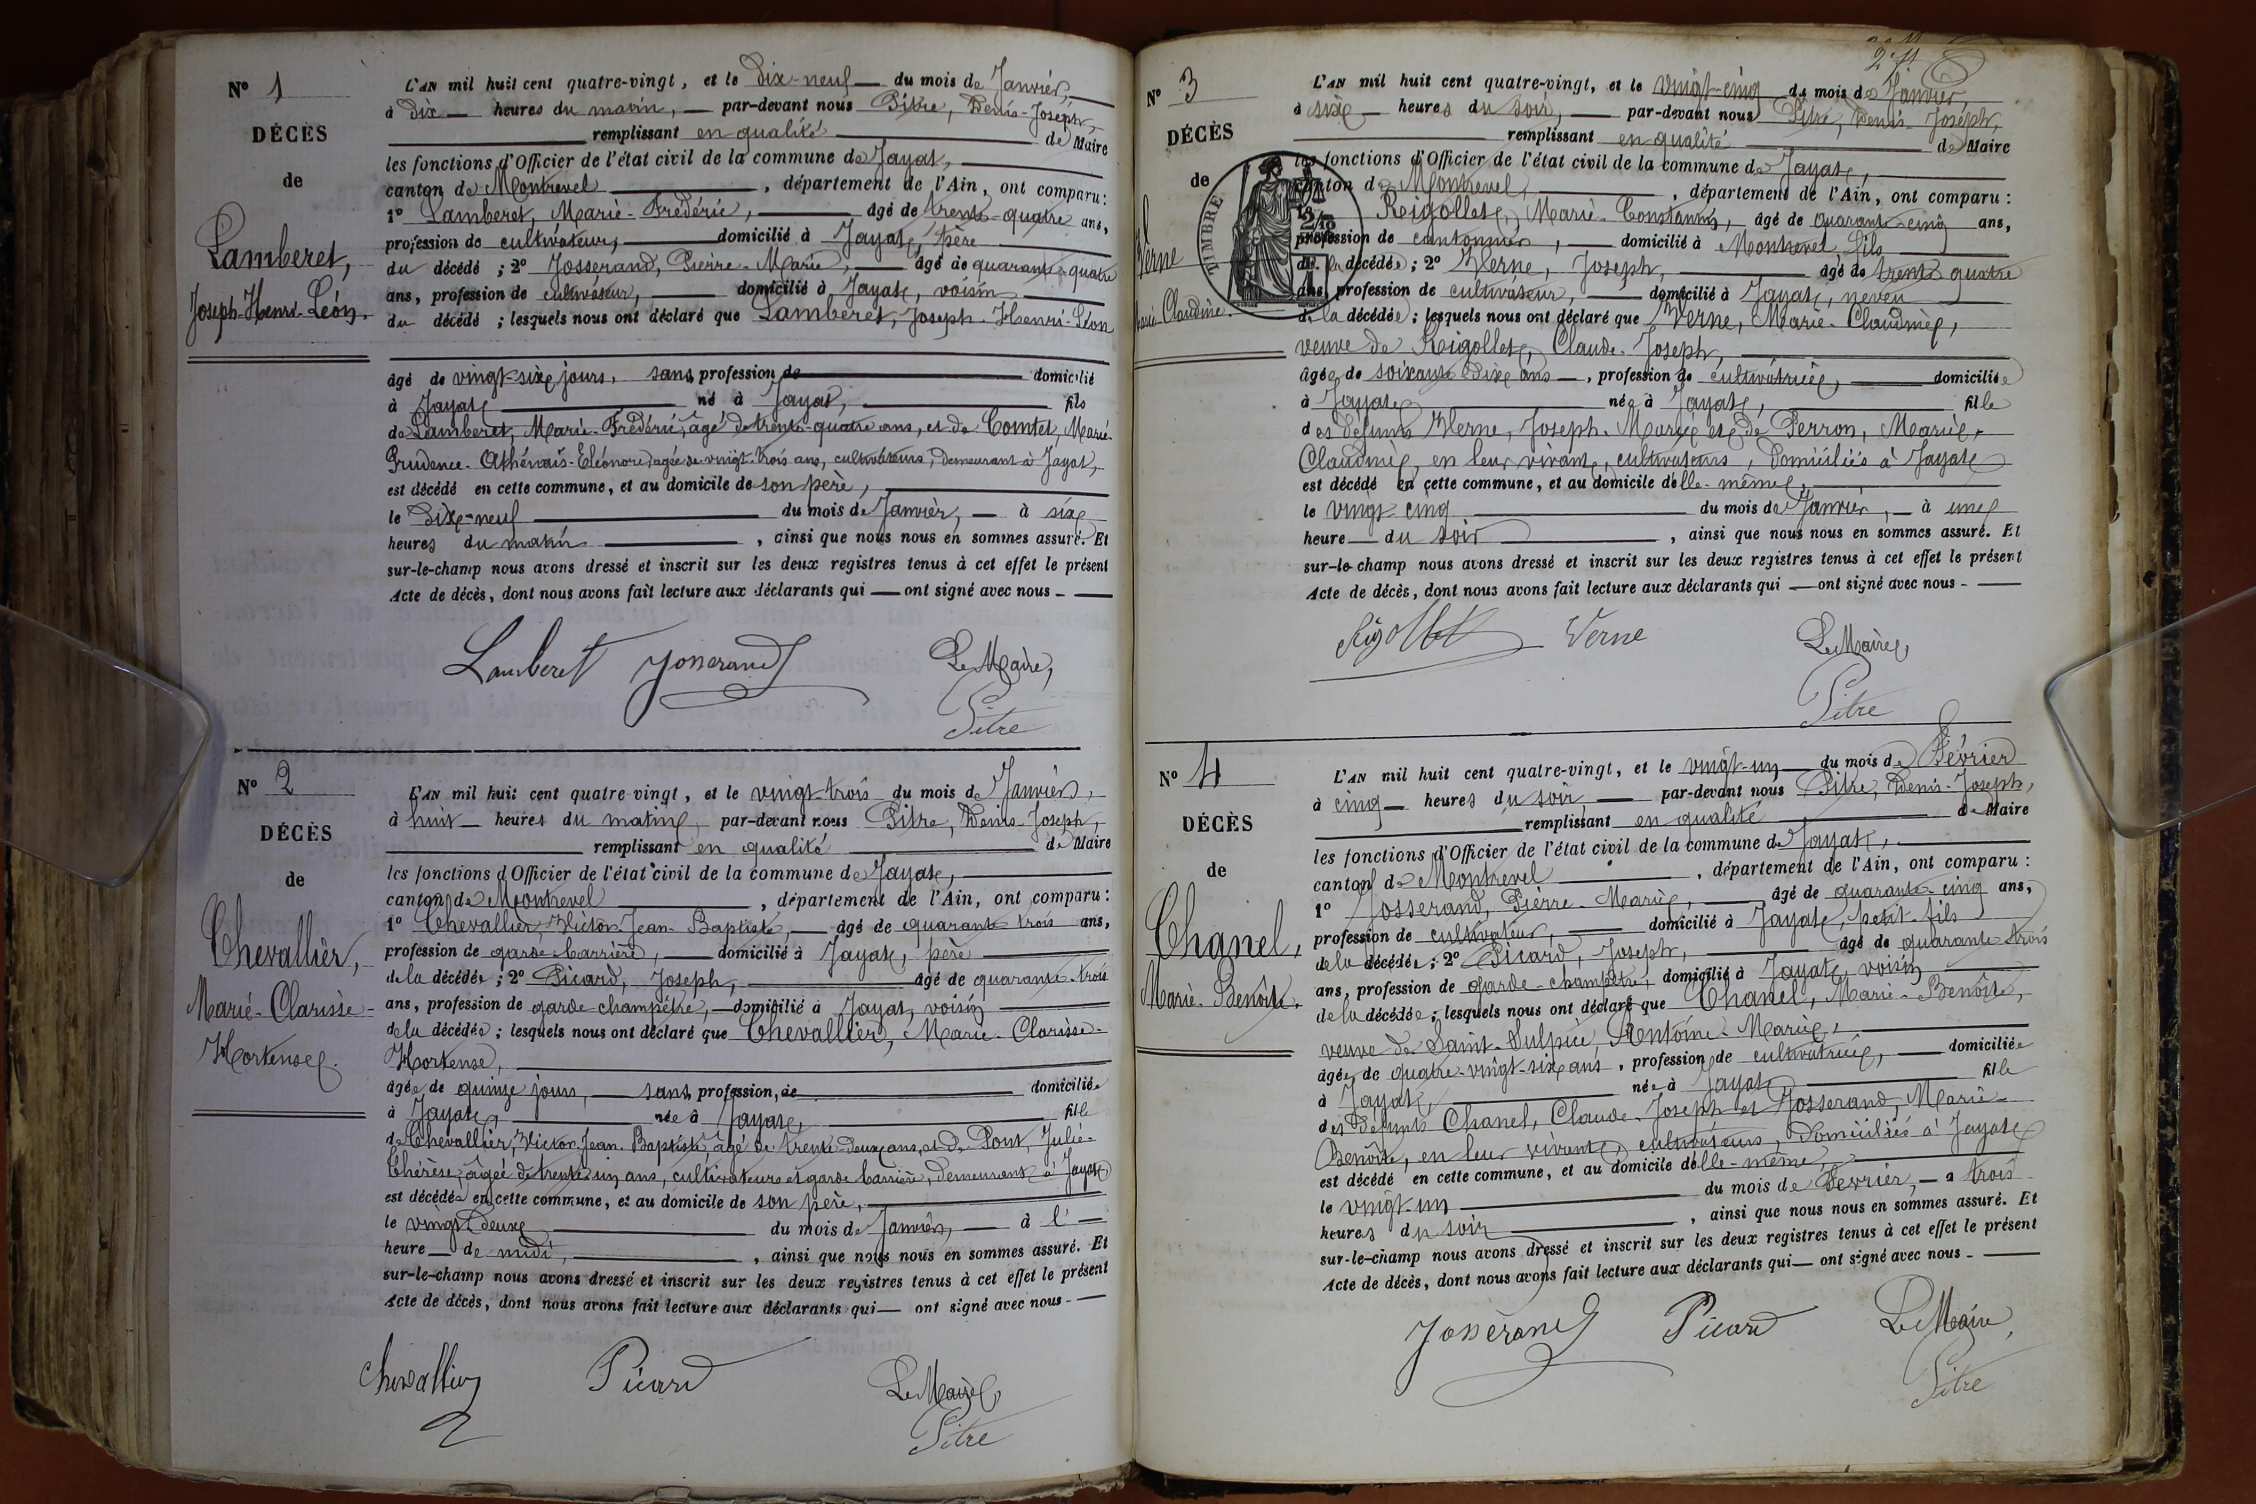 Nº 1
DÉCÈS
de
Lamberet,
Joseph-Henri-Léon.
L'AN mil huit cent quatre-vingt, et le Dix-neuf du mois de Janvier,
à Dix heures du matin, par-devant nous Pitre, Denis-Joseph,
remplissant en qualité de Maire
les fonctions d'Officier de l'état civil de la commune de Jayat,
canton de Montrevel, département de l'Ain, ont comparu:
1º Lamberet, Marie-Frédéric, âgé de trente-quatre ans,
profession de cultivateur, domicilié à Jayat, père
du décédé; 2º Josserand, Pierre-Marie, âgé de quarante-quatre
ans, profession de cultivateur, domicilié à Jayat, voisin
du décédé; lesquels nous ont déclaré que Lamberet, Joseph-Henri-Léon
âgé de vingt-six jours, sans profession de domicilié
à Jayat né à Jayat, fils
de Lamberet, Marie-Frédéric, âgé de trente-quatre ans, et de Comtet, Marie-
Prudence-Athénaïs-Eléonore, agée de vingt-trois ans, cultivateurs, demeurant à Jayat,
est décédé en cette commune, et au domicile de son père,
le Dix-neuf du mois de Janvier, à six
heures du matin, ainsi que nous nous en sommes assuré. Et
sur-le-champ nous avons dressé et inscrit sur les deux registres tenus à cet effet le présent
Acte de décès, dont nous avons fait lecture aux déclarants qui ont signé avec nous -
Lamberet Josserand Le Maire,
Pitre
Nº 2
DÉCÈS
de
Chevallier,
Marie-Clarisse-
Hortense.
L'AN mil huit cent quatre-vingt, et le vingt-trois du mois de Janvier,
à huit heures du matin, par-devant nous Pitre, Denis-Joseph,
remplissant en qualité de Maire
les fonctions d'Officier de l'état civil de la commune de Jayat,
canton de Montrevel, département de l'Ain, ont comparu:
1º Chevallier Victor-Jean-Baptiste, âgé de quarante trois ans,
profession de garde-barrière, domicilié à Jayat, père
de la décédée; 2º Picard, Joseph, âgé de quarante-trois
ans, profession de garde-champêtre, domicilié à Jayat, voisin
de la décédée; lesquels nous ont déclaré que Chevallier, Marie-Clarisse-
Hortense,
âgée de quinze jours, sans profession, de domiciliée
à Jayat, née à Jayat, fille
de Chevallier, Victor-Jean-Baptiste, âgé de trente-deux ans, et de Pont, Julie-
Thérèse, âgée de trente-un ans, cultivateurs et garde barrière, demeurant à Jayat
est décédée en cette commune, et au domicile de son père,
le vingt-deux du mois de Janvier, à l'
heure de midi, ainsi que nous nous en sommes assuré. Et
sur-le-champ nous avons dressé et inscrit sur les deux registres tenus à cet effet le présent
Acte de décès, dont nous avons fait lecture aux déclarants qui ont signé avec nous -
Chevallier Picard Le Maire,
Pitre
Nº 3
DÉCÈS
de
Verne
Marie-Claudine.
TIMBRE
L'AN mil huit cent quatre-vingt, et le vingt-cinq du mois de Janvier,
à six heures du soir, par-devant nous Pitre, Denis-Joseph,
remplissant en qualité de Maire
les fonctions d'Officier de l'état civil de la commune de Jayat,
canton de Montrevel, département de l'Ain, ont comparu:
1º Rigollet, Marie-Constantin, âgé de quarante-cinq ans,
profession de cantonnier, domicilié à Montrevel, fils
de la décédée; 2º Verne, Joseph, âgé de trente quatre
ans, profession de cultivateur, domicilié à Jayat, neveu
de la décédée; lesquels nous ont déclaré que Verne, Marie-Claudine,
veuve de Rigollet, Claude-Joseph,
âgée de soixante Dix ans, profession de cultivatrice, domiciliée
à Jayat née à Jayat, fille
des défunts Verne, Joseph-Marie et de Perron, Marie,
Claudine, en leur vivant, cultivateurs, domiciliés à Jayat
est décédé en cette commune, et au domicile d'elle-même,
le vingt cinq du mois de Janvier, à une
heure du soir, ainsi que nous nous en sommes assuré. Et
sur-le-champ nous avons dressé et inscrit sur les deux registres tenus à cet effet le présent
Acte de décès, dont nous avons fait lecture aux déclarants qui ont signé avec nous -
Rigollet Verne Le Maire,
Pitre
Nº 4
DÉCÈS
de
Chanel,
Marie-Benoîte.
L'AN mil huit cent quatre-vingt, et le vingt-un du mois de Février
à cinq heures du soir, par-devant nous Pitre, Denis-Joseph,
remplissant en qualité de Maire
les fonctions d'Officier de l'état civil de la commune de Jayat,
canton de Montrevel, département de l'Ain, ont comparu:
1º Josserand, Pierre-Marie, âgé de quarante-cinq ans,
profession de cultivateur, domicilié à Jayat, petit-fils
de la décédée; 2º Picard, Joseph, âgé de quarante trois
ans, profession de garde-champêtre, domicilié à Jayat, voisin
de la décédée; lesquels nous ont déclaré que Chanel, Marie-Benoîte,
veuve de Saint-Sulpice, Antoine-Marie,
âgée de quatre-vingt-six ans, profession de cultivatrice, domiciliée
à Jayat, née à Jayat fille
des défunts Chanel, Claude-Joseph et Josserand, Marie-
Benoîte, en leur vivant, cultivateurs, domiciliés à Jayat
est décédé en cette commune, et au domicile d'elle-même,
le vingt-un du mois de Février, à trois
heures du soir, ainsi que nous nous en sommes assuré. Et
sur-le-champ nous avons dressé et inscrit sur les deux registres tenus à cet effet le présent
Acte de décès, dont nous avons fait lecture aux déclarants qui ont signé avec nous -
Josserand Picard Le Maire,
Pitre